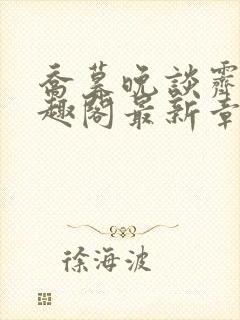 乔暮晚谈霁
趣阁最新章
徐海波